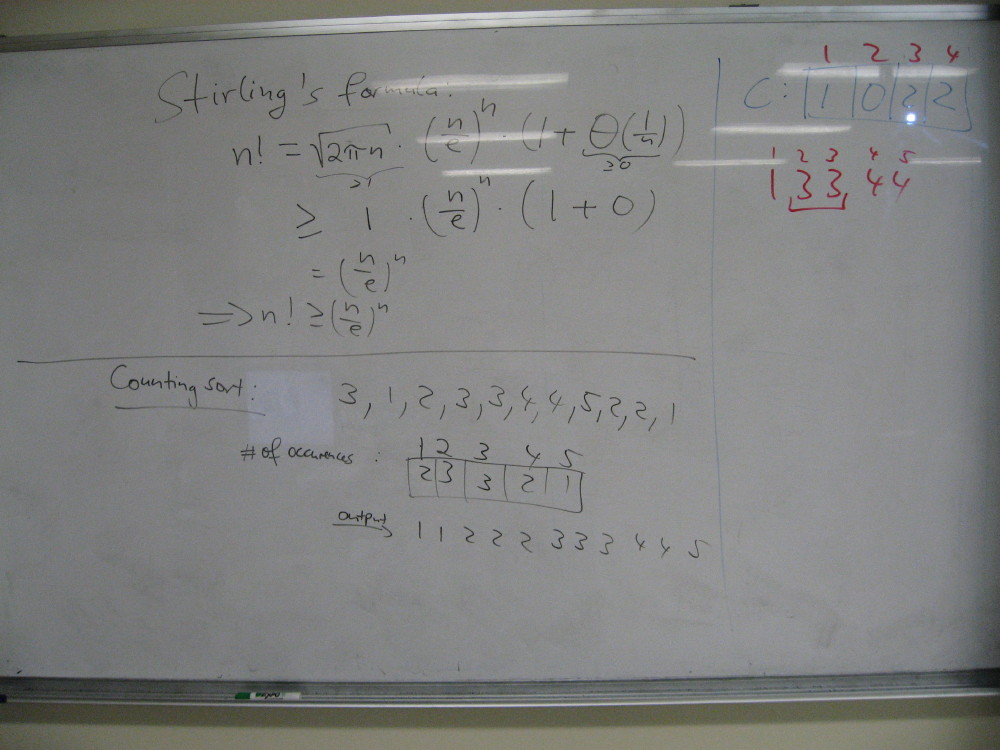 Stirling's formula:
n! = √2πn · (n/e)^n · (1 + Θ(1/n))
≥1 ≥0
≥ 1 · (n/e)^n · (1 + 0)
= (n/e)^n
⟹ n! ≥ (n/e)^n
Counting sort: 3, 1, 2, 3, 3, 4, 4, 5, 2, 2, 1
1 2 3 4 5
# of occurences : 2 3 3 2 1
output → 1 1 2 2 2 3 3 3 4 4 5
1 2 3 4
C: 1 0 2 2
1 2 3 4 5
1 3 3 4 4